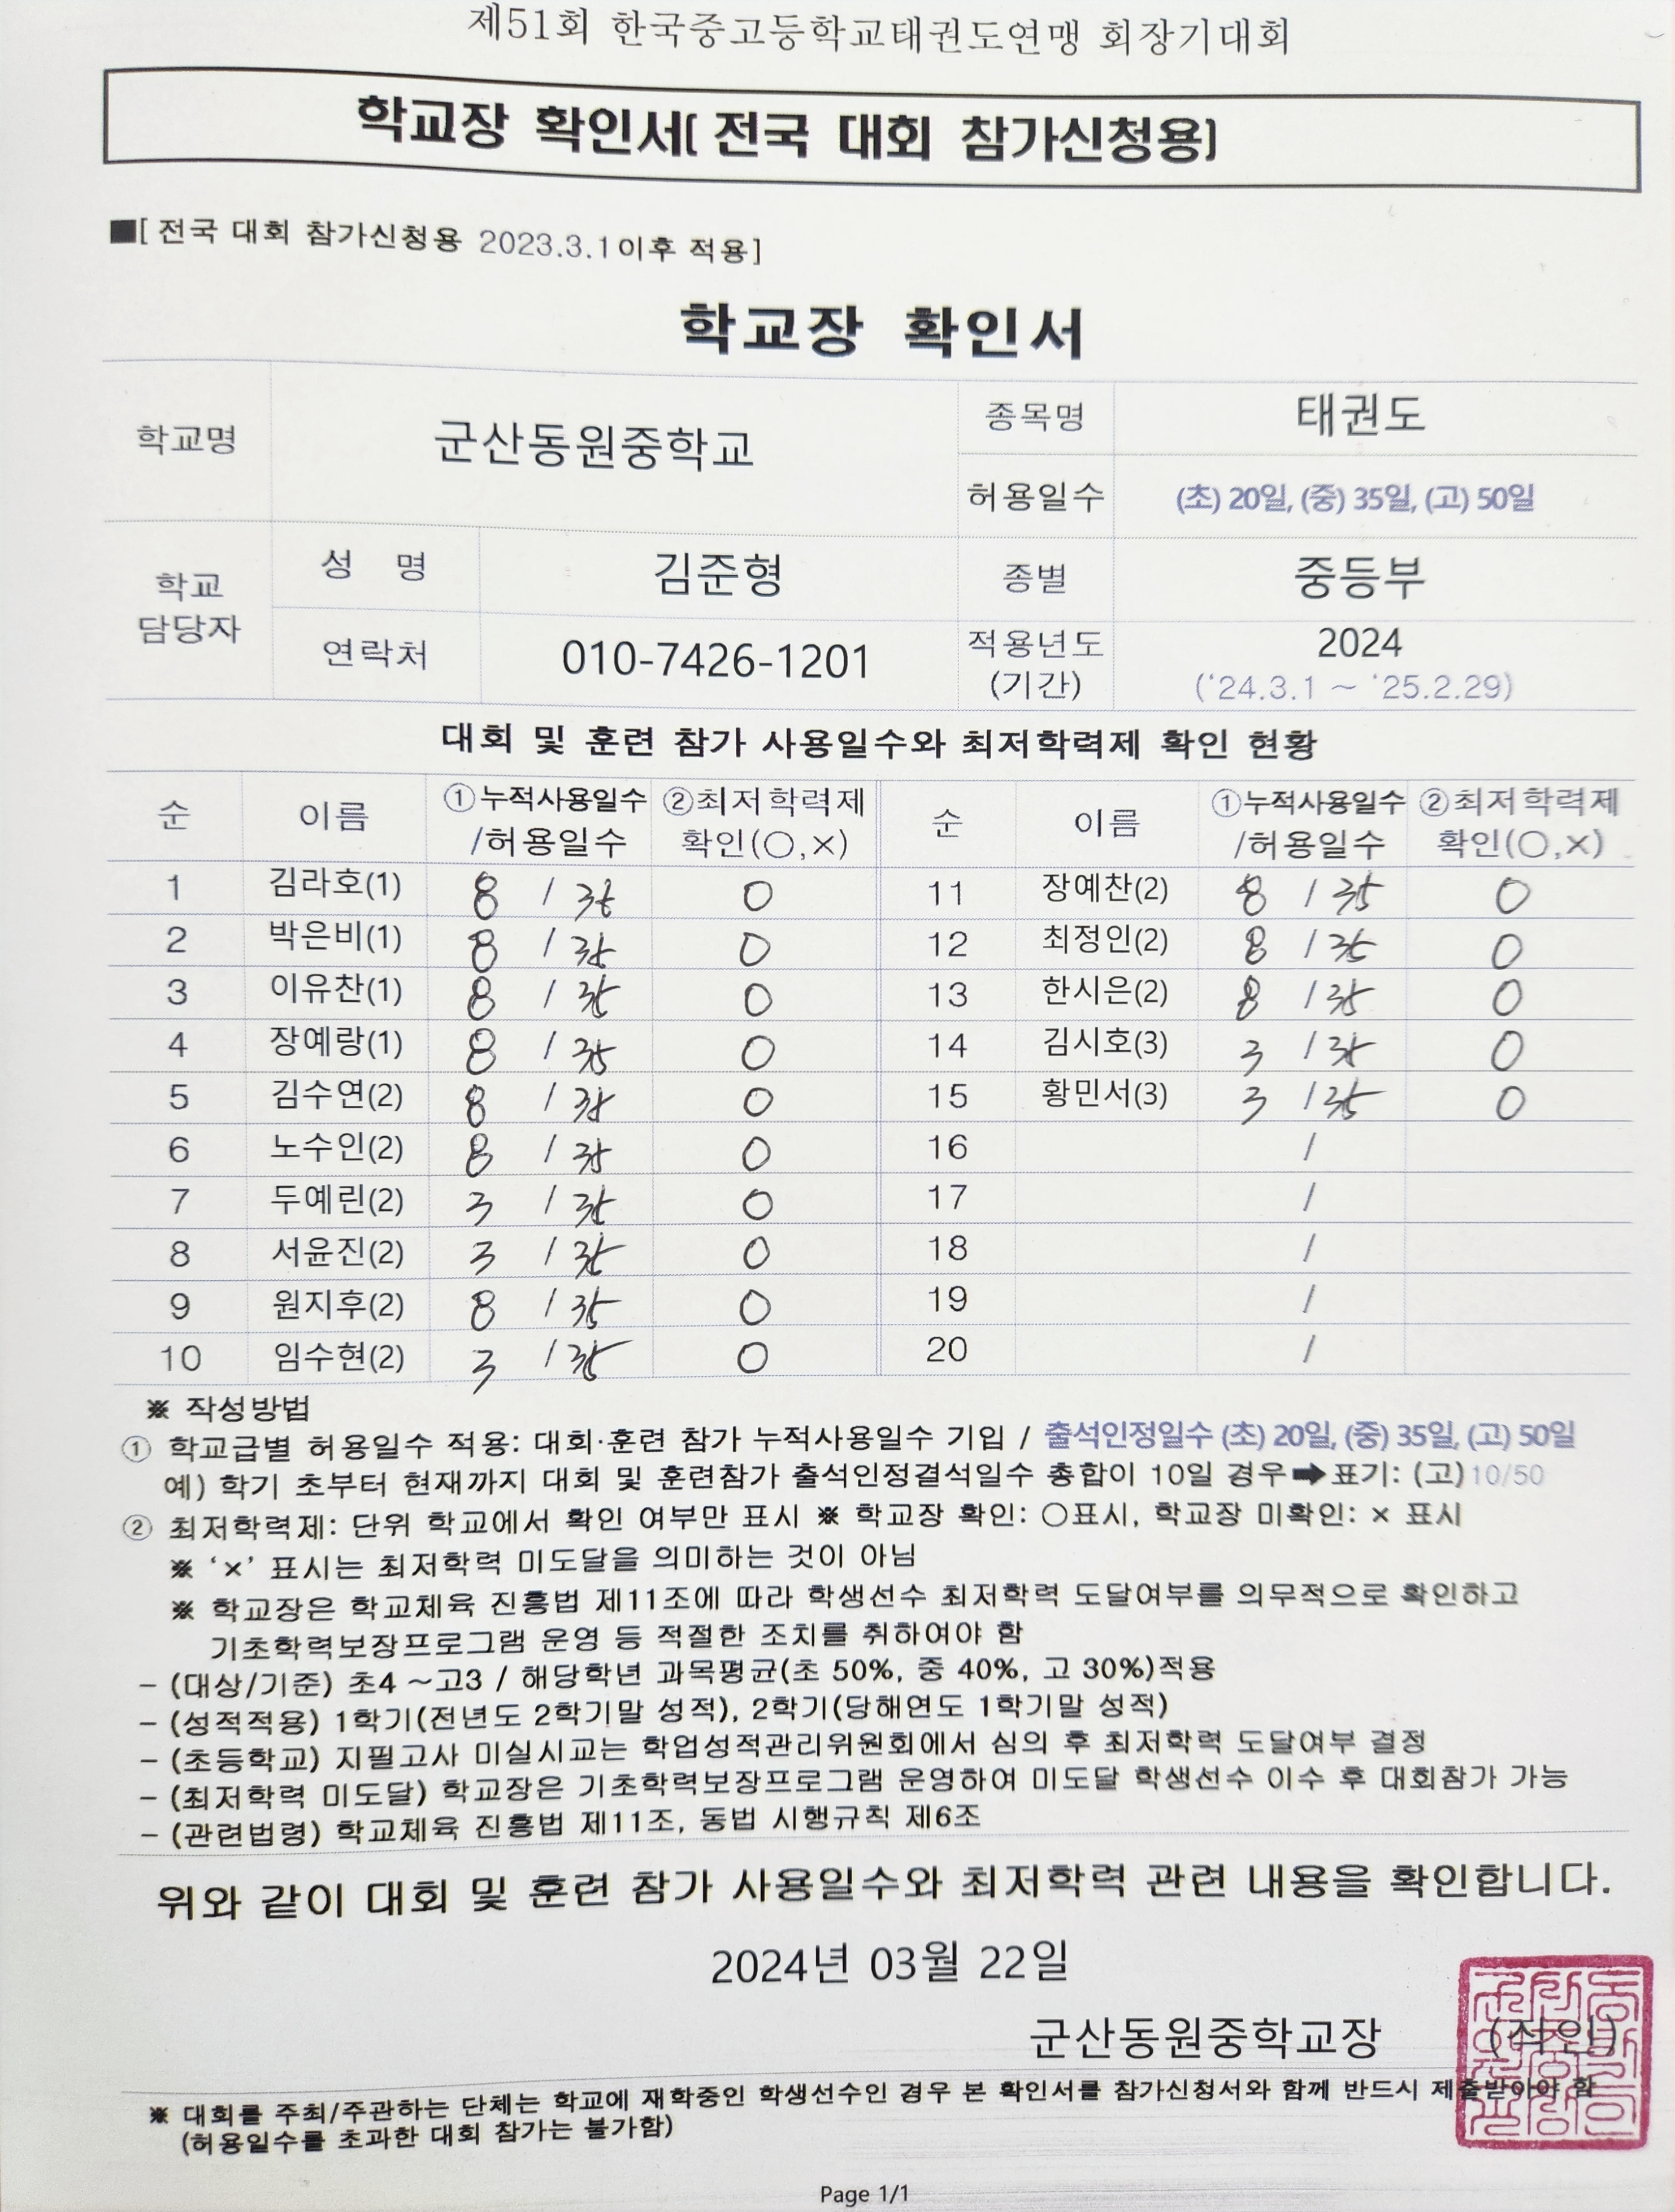 제51회 한국중고등학교태권도연맹 회장기대회
학교장 확인서[ 전국 대회 참가신청용]
■[ 전국 대회 참가신청용 2023.3.1이후 적용]
학교장 확인서
학교명 군산동원중학교 종목명 태권도
허용일수 (초) 20일, (중) 35일, (고) 50일
학교 담당자 성 명 김준형 종별 중등부
연락처 010-7426-1201 적용년도 (기간) 2024 (‘24.3.1 ~ ‘25.2.29)
대회 및 훈련 참가 사용일수와 최저학력제 확인 현황
순 이름 ①누적사용일수 /허용일수 ②최저학력제 확인(○,×) 순 이름 ①누적사용일수 /허용일수 ②최저학력제 확인(○,×)
1 김라호(1) 8 / 35 O 11 장예찬(2) 8 / 35 O
2 박은비(1) 8 / 35 O 12 최정인(2) 8 / 35 O
3 이유찬(1) 8 / 35 O 13 한시은(2) 8 / 35 O
4 장예랑(1) 8 / 35 O 14 김시호(3) 3 / 35 O
5 김수연(2) 8 / 35 O 15 황민서(3) 3 / 35 O
6 노수인(2) 8 / 35 O 16 /
7 두예린(2) 3 / 35 O 17 /
8 서윤진(2) 3 / 35 O 18 /
9 원지후(2) 8 / 35 O 19 /
10 임수현(2) 3 / 35 O 20 /
※ 작성방법
① 학교급별 허용일수 적용: 대회·훈련 참가 누적사용일수 기입 / 출석인정일수 (초) 20일, (중) 35일, (고) 50일
예) 학기 초부터 현재까지 대회 및 훈련참가 출석인정결석일수 총합이 10일 경우➡표기: (고)10/50
② 최저학력제: 단위 학교에서 확인 여부만 표시 ※ 학교장 확인: ○표시, 학교장 미확인: × 표시
※ ‘×’ 표시는 최저학력 미도달을 의미하는 것이 아님
※ 학교장은 학교체육 진흥법 제11조에 따라 학생선수 최저학력 도달여부를 의무적으로 확인하고
기초학력보장프로그램 운영 등 적절한 조치를 취하여야 함
– (대상/기준) 초4 ~고3 / 해당학년 과목평균(초 50%, 중 40%, 고 30%)적용
– (성적적용) 1학기(전년도 2학기말 성적), 2학기(당해연도 1학기말 성적)
– (초등학교) 지필고사 미실시교는 학업성적관리위원회에서 심의 후 최저학력 도달여부 결정
– (최저학력 미도달) 학교장은 기초학력보장프로그램 운영하여 미도달 학생선수 이수 후 대회참가 가능
– (관련법령) 학교체육 진흥법 제11조, 동법 시행규칙 제6조
위와 같이 대회 및 훈련 참가 사용일수와 최저학력 관련 내용을 확인합니다.
2024년 03월 22일
군산동원중학교장 (직인)
※ 대회를 주최/주관하는 단체는 학교에 재학중인 학생선수인 경우 본 확인서를 참가신청서와 함께 반드시 제출받아야 함
(허용일수를 초과한 대회 참가는 불가함)
Page 1/1